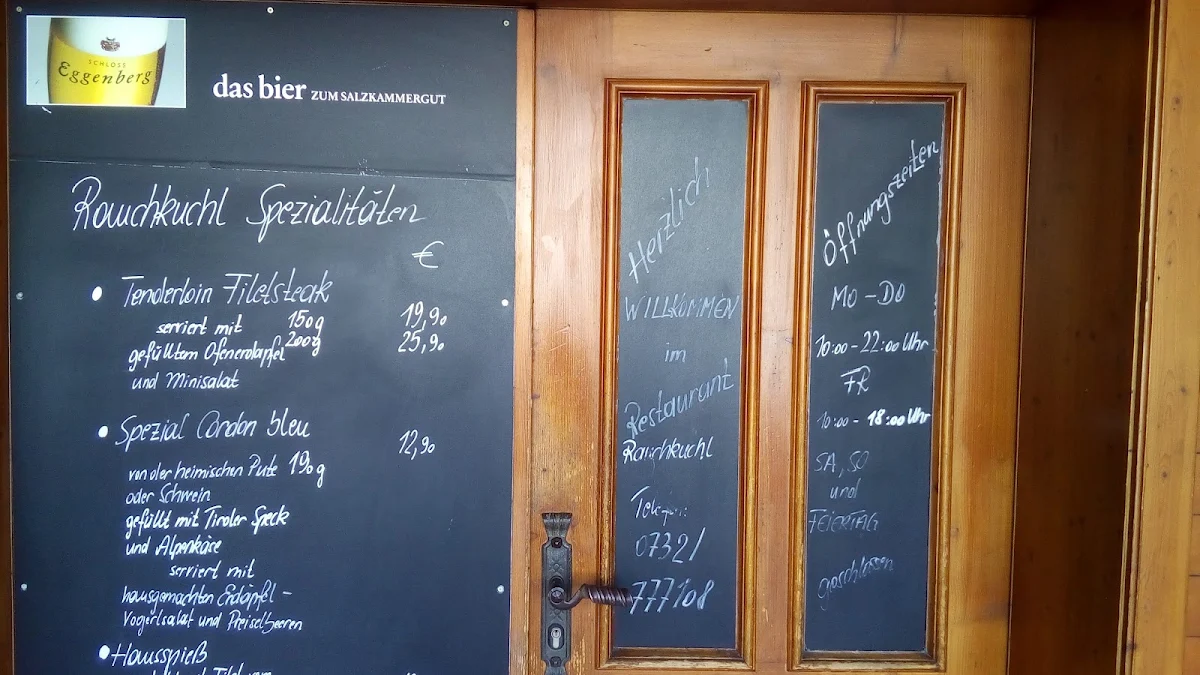 SCHLOSS
Eggenberg
das bier ZUM SALZKAMMERGUT
Rauchkuchl Spezialitäten
€
Tenderloin Filetsteak
serviert mit 150g 19,90
gefülltem Ofenerdapfel 200g 25,90
und Minisalat
Spezial Cordon bleu 12,90
von der heimischen Pute 190g
oder Schwein
gefüllt mit Tiroler Speck
und Alpenkäse
serviert mit
hausgemachten Erdapfel-
Vogerlsalat und Preiselbeeren
Hausspieß
Herzlich
WILLKOMMEN
im
Restaurant
Rauchkuchl
0732/
777108
Öffnungszeiten
MO - DO
10:00 - 22:00 Uhr
FR
10:00 - 18:00 Uhr
SA, SO
und
FEIERTAG
geschlossen